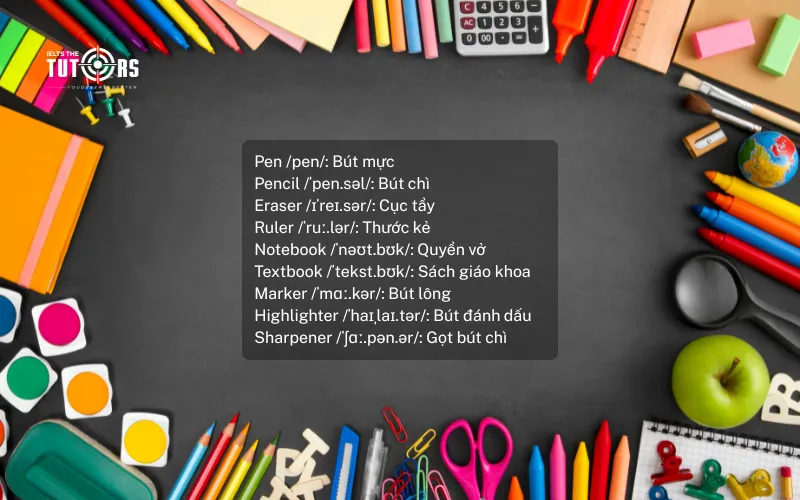 IELTS THE
TUTORS
Pen /pen/: Bút mực
Pencil /ˈpen.səl/: Bút chì
Eraser /ɪˈreɪ.sər/: Cục tẩy
Ruler /ˈruː.lər/: Thước kẻ
Notebook /ˈnəʊt.bʊk/: Quyển vở
Textbook /ˈtekst.bʊk/: Sách giáo khoa
Marker /ˈmɑː.kər/: Bút lông
Highlighter /ˈhaɪˌlaɪ.tər/: Bút đánh dấu
Sharpener /ˈʃɑː.pən.ər/: Gọt bút chì